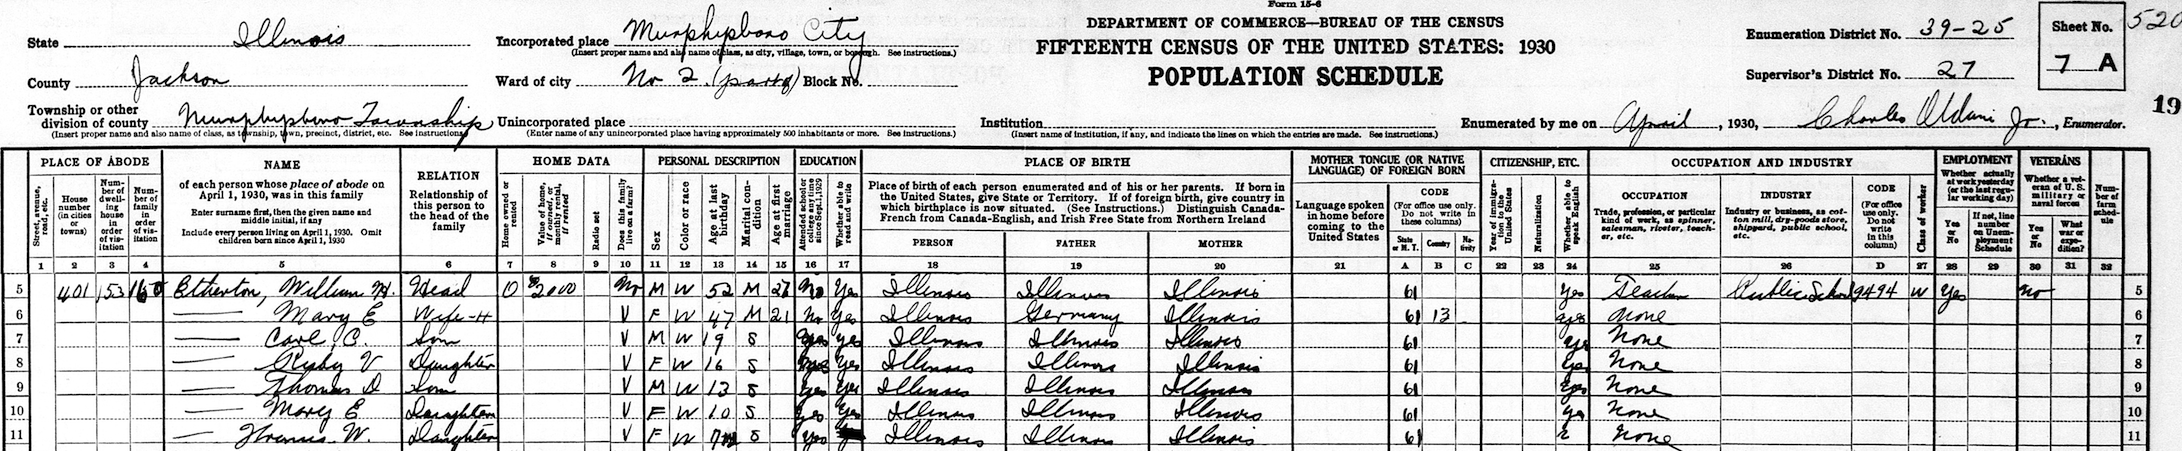 Form 15-6
State Illinois
County Jackson
Township or other division of county Murphysboro Township
(Insert proper name and also name of class, as township, town, precinct, district, etc. See instructions.)
Incorporated place Murphysboro City
(Insert proper name and also name of class, as city, village, town, or borough. See instructions.)
Ward of city No 2 (part of) Block No.
Unincorporated place
(Enter name of any unincorporated place having approximately 500 inhabitants or more. See instructions.)
DEPARTMENT OF COMMERCE—BUREAU OF THE CENSUS
FIFTEENTH CENSUS OF THE UNITED STATES: 1930
POPULATION SCHEDULE
Institution
(Insert name of institution, if any, and indicate the lines on which the entries are made. See instructions.)
Enumeration District No. 39-25
Supervisor's District No. 27
Sheet No.
7 A
520
19
Enumerated by me on April, 1930, Charles Oldani Jr., Enumerator.
PLACE OF ABODE
Street, avenue, road, etc.
House number (in cities or towns)
Number of dwelling house in order of visitation
Number of family in order of visitation
NAME
of each person whose place of abode on April 1, 1930, was in this family
Enter surname first, then the given name and middle initial, if any
Include every person living on April 1, 1930. Omit children born since April 1, 1930
RELATION
Relationship of this person to the head of the family
HOME DATA
Home owned or rented
Value of home, if owned, or monthly rental, if rented
Radio set
Does this family live on a farm?
PERSONAL DESCRIPTION
Sex
Color or race
Age at last birthday
Marital condition
Age at first marriage
EDUCATION
Attended school or college any time since Sept. 1, 1929
Whether able to read and write
PLACE OF BIRTH
Place of birth of each person enumerated and of his or her parents. If born in the United States, give State or Territory. If of foreign birth, give country in which birthplace is now situated. (See Instructions.) Distinguish Canada-French from Canada-English, and Irish Free State from Northern Ireland
PERSON
FATHER
MOTHER
MOTHER TONGUE (OR NATIVE LANGUAGE) OF FOREIGN BORN
Language spoken in home before coming to the United States
CODE
(For office use only. Do not write in these columns)
State or M. T.
Country
Nativity
CITIZENSHIP, ETC.
Year of immigration to the United States
Naturalization
Whether able to speak English
OCCUPATION AND INDUSTRY
OCCUPATION
Trade, profession, or particular kind of work, as spinner, salesman, riveter, teacher, etc.
INDUSTRY
Industry or business, as cotton mill, dry-goods store, shipyard, public school, etc.
CODE
(For office use only. Do not write in this column)
Class of worker
EMPLOYMENT
Whether actually at work yesterday (or the last regular working day)
Yes or No
If not, line number on Unemployment Schedule
VETERANS
Whether a veteran of U. S. military or naval forces
Yes or No
What war or expedition?
Number of farm schedule
1 2 3 4 5 6 7 8 9 10 11 12 13 14 15 16 17 18 19 20 21 A B C 22 23 24 25 26 D 27 28 29 30 31 32
5 401 153 160 Etherton, William H. Head O 2000 No M W 52 M 26 No Yes Illinois Illinois Illinois 61 Yes Teacher Public School 9494 W Yes No 5
6 — Mary E Wife-H V F W 47 M 21 No Yes Illinois Germany Illinois 61 13 yes None 6
7 — Carl C. Son V M W 19 S Yes Yes Illinois Illinois Illinois 61 Yes None 7
8 — V Daughter V F W 16 S Yes Yes Illinois Illinois Illinois 61 Yes None 8
9 — Thomas D Son V M W 13 S Yes Yes Illinois Illinois Illinois 61 Yes None 9
10 — Mary E Daughter V F W 10 S Yes Yes Illinois Illinois Illinois 61 Yes None 10
11 — W. Daughter V F W 7 S Yes Illinois Illinois Illinois 61 None 11